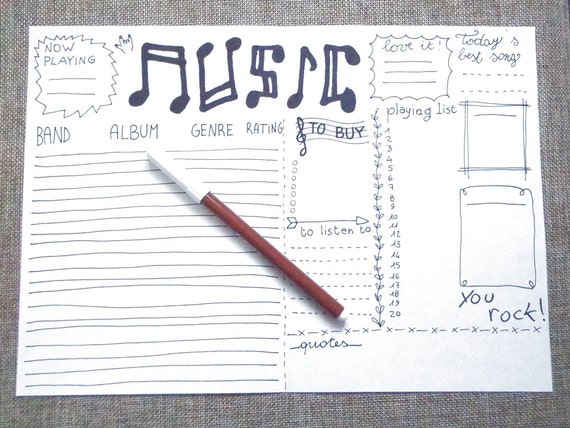 NOW
PLAYING
MUSIC
love it!
Today's
best song
BAND ALBUM GENRE RATING
TO BUY
to listen to
playing list
1
2
3
4
5
6
7
8
9
10
11
12
13
14
15
16
17
18
19
20
You
rock!
quotes